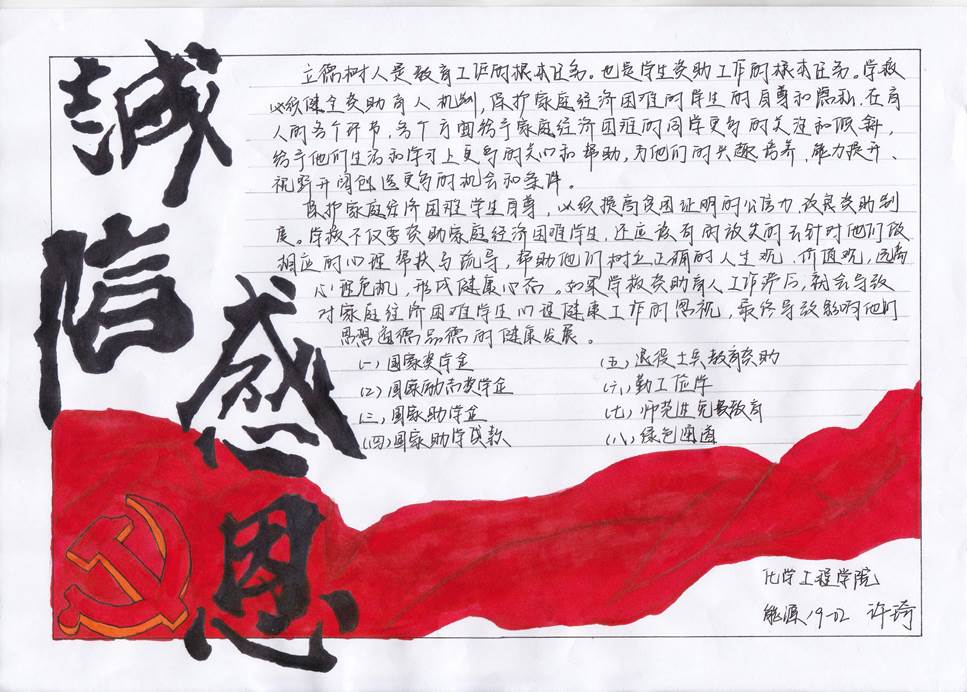 誠信
感恩
立德树人是教育工作的根本任务。也是学生资助工作的根本任务。学校
必须健全资助育人机制，保护家庭经济困难的学生的自尊和隐私，在育
人的各个环节，各个方面给予家庭经济困难的同学更多的关注和倾斜，
给予他们生活和学习上更多的关心和帮助，为他们的兴趣培养、能力提升、
视野开阔创造更多的机会和条件。
保护家庭经济困难学生自尊，必须提高贫困证明的公信力，改良资助制
度。学校不仅要资助家庭经济困难学生，还应该有的放矢的去针对他们做
相应的心理帮扶与疏导，帮助他们树立正确的人生观、价值观，远离
心理危机，形成健康心态。如果学校资助育人工作滞后，就会导致
对家庭经济困难学生心理健康工作的忽视，最终导致影响他们
思想道德品德的健康发展。
(一)国家奖学金
(五)退役士兵教育资助
(二)国家励志奖学金
(六)勤工俭学
(三)国家助学金
(七)师范生免费教育
(四)国家助学贷款
(八)绿色通道
化学工程学院
能源19-02 许琦